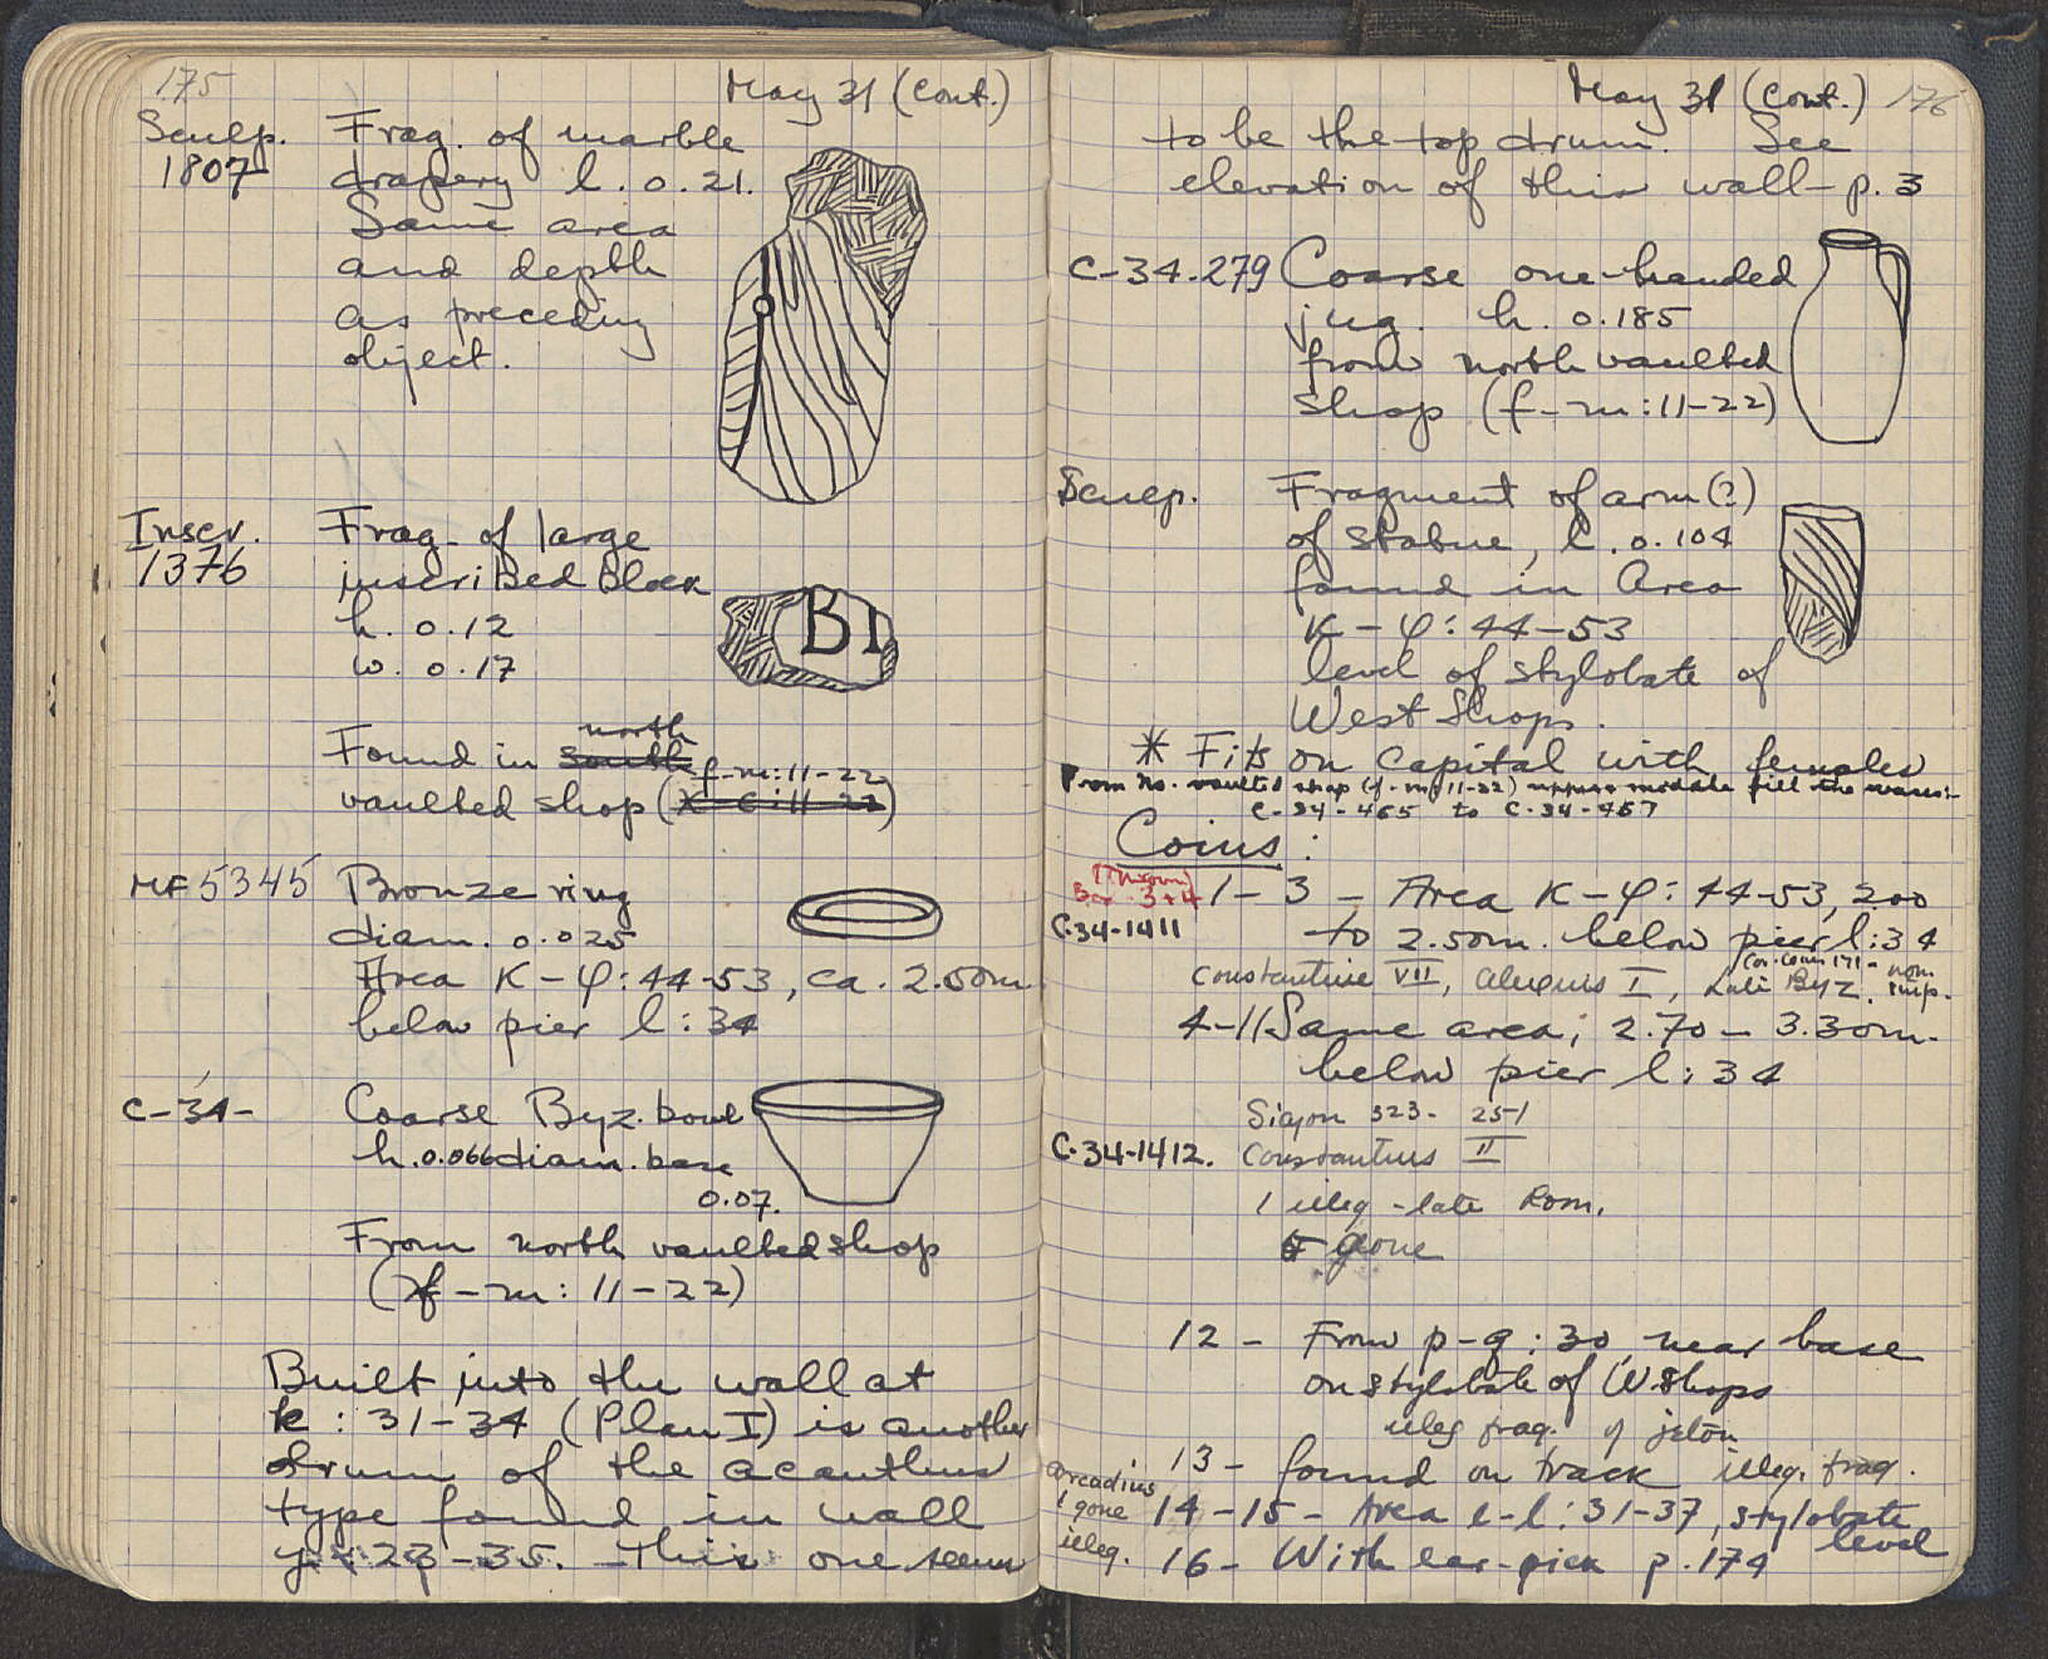 175
May 31 (Cont.)
Sculp. 1807
Frag. of marble
drapery l. 0.21.
Same area
and depth
as preceding
object.
Inscr. 1376
Frag. of large
inscribed block
h. 0.12
w. 0.17
BI
north
Found in south f-m:11-22
vaulted shop (
MF 5345 Bronze ring
diam. 0.025
Area K-φ:44-53, ca. 2.50m
below pier l:34
C-34- Coarse Byz. bowl
h. 0.066 diam. base
0.07.
From north vaulted shop
(f-m: 11-22)
Built into the wall at
k: 31-34 (Plan I) is another
drum of the acanthus
type found in wall
23-35. This one seems
May 31 (Cont.) 176
to be the top drum. See
elevation of this wall - p. 3
C-34-279 Coarse one-handed
jug. h. 0.185
from north vaulted
shop (f-m:11-22)
Sculp. Fragment of arm (?)
of statue, l. 0.104
found in Area
K-φ:44-53
level of stylobate of
West Shops.
* Fits on Capital with females
From no. vaulted shop (f-m:11-22) upper middle fill the vases:-
C-34-465 to C-34-467
Coins:
Box 3+4
1-3 - Area K-φ:44-53, 2.00
C-34-1411
to 2.50m. below pier l:34
Constantine VII, Alexius I, Late Byz. imp.
4-11 Same area; 2.70 - 3.30m.
below pier l:34
Sicyon 323-251
C-34-1412. Constantius II
1 illeg - late Rom.
gone
12 - From p-q:30, near base
on stylobate of W. Shops
illeg frag. of jeton
13 - found on track illeg. frag.
Arcadius
1 gone
14-15 - Area e-l:31-37, stylobate
level
illeg.
16 - With ear-pick p. 174